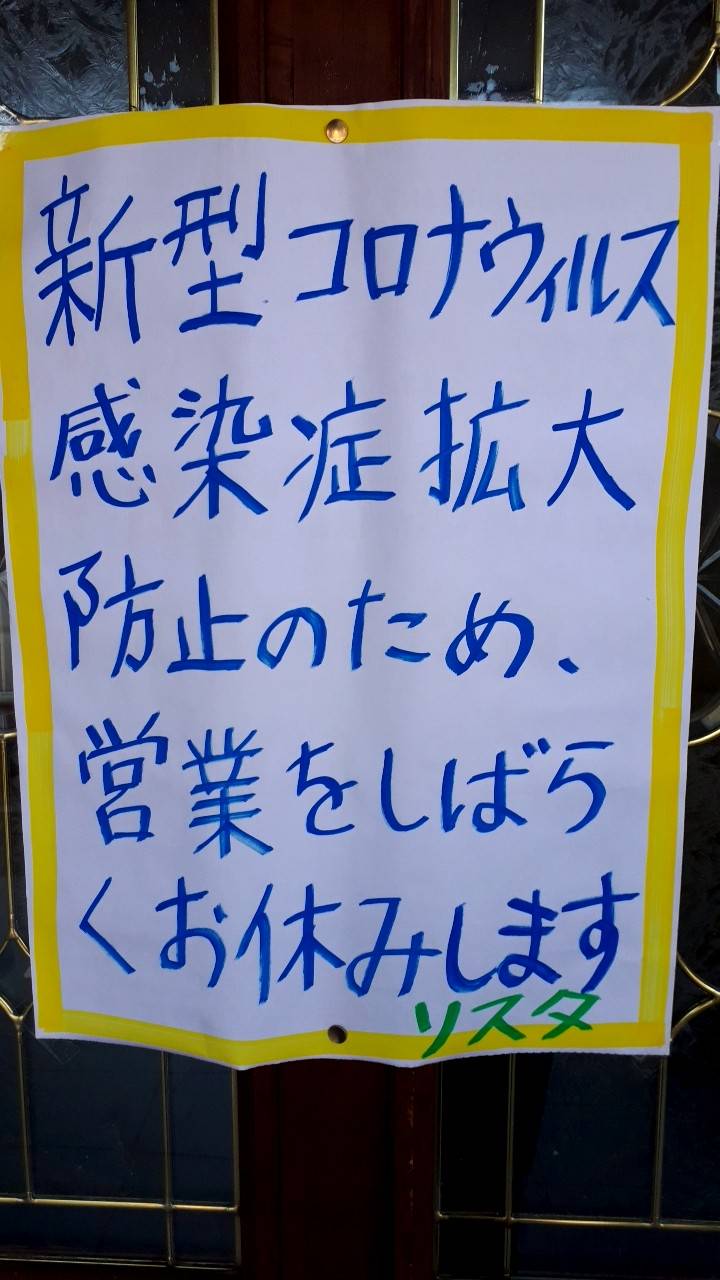 新型コロナウィルス
感染症拡大
防止のため、
営業をしばら
くお休みします
リスタ